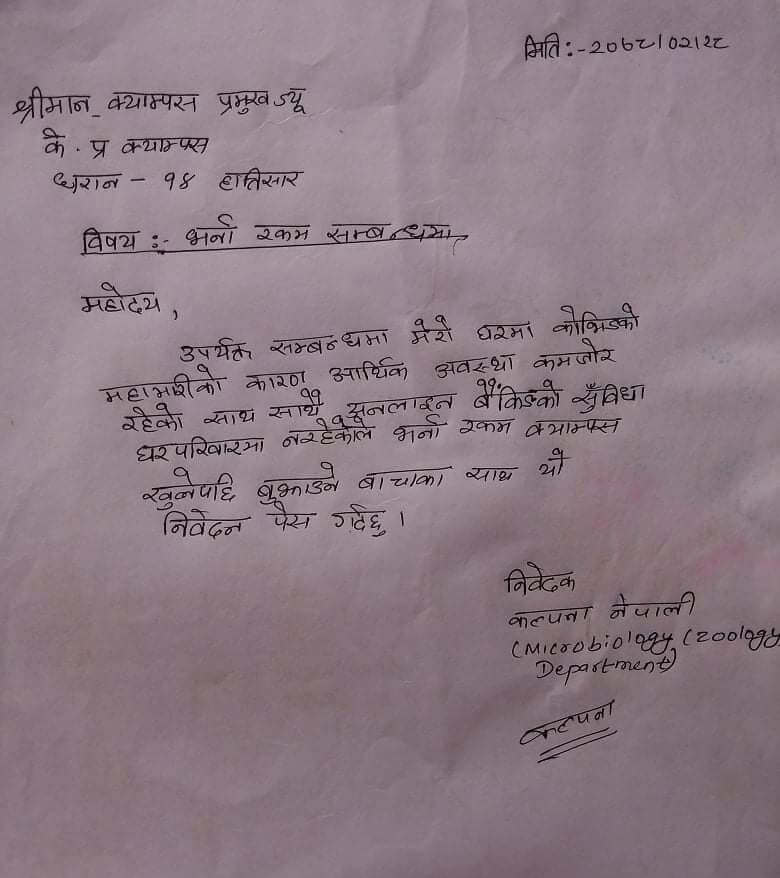 मिति :- २०७८।०२।२८
श्रीमान क्याम्पस प्रमुखज्यू
के . प्र क्याम्पस
धरान - १४ हात्तिसार
विषय :- भर्ना रकम सम्बन्धमा
महोदय ,
उपर्यक्त सम्बन्धमा मेरो घरमा कोभिडको
महामारीको कारण आर्थिक अवस्था कमजोर
रहेको साथ साथै अनलाइन बैंकिङको सुँविधा
घरपरिवारमा नरहेकोले भर्ना रकम क्याम्पस
खुलेपछि बुझाउने बाचाका साथ यो
निवेदन पेस गर्दछु ।
निवेदक
कल्पना नेपाली
(Microbiology (Zoology
Department)
कल्पना